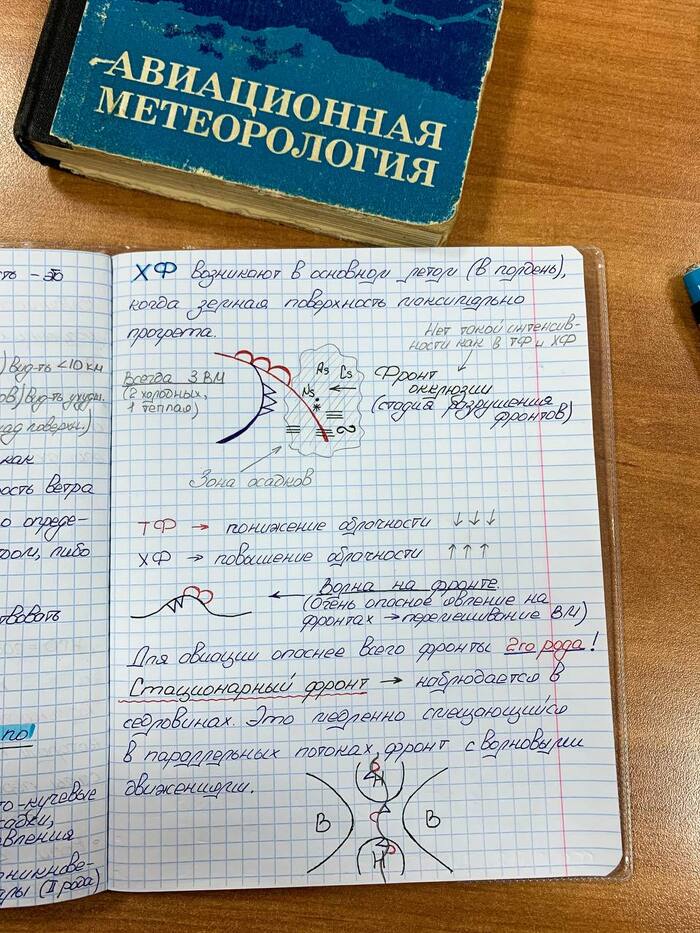 АВИАЦИОННАЯ
МЕТЕОРОЛОГИЯ
сть –
) вид-ть <10 км
ов) вид-ть ухудш.
над поверхн.)
как
рость ветра
о опреде-
ром, либо
ствовать
по
то-кучевые
садки,
вления
зникнове-
ары (II рода)
ХФ возникают в основном летом (в полдень),
когда земная поверхность максимально
прогрета.
Нет такой интенсив-
ности как в ТФ и ХФ
Всегда 3 ВМ
(2 холодных,
1 теплая)
As Cs
Ns
Фронт
окклюзии
(стадия разрушения
фронтов)
Зона осадков
ТФ → понижение облачности ↓↓↓
ХФ → повышение облачности ↑↑↑
← Волна на фронте
(Очень опасное явление на
фронтах → перемешивание ВМ)
Для авиации опаснее всего фронты 2го рода!
Стационарный фронт → наблюдается в
седловинах. Это медленно смещающийся
в параллельных потоках, фронт с волновыми
движениями.
Н
В В
Н